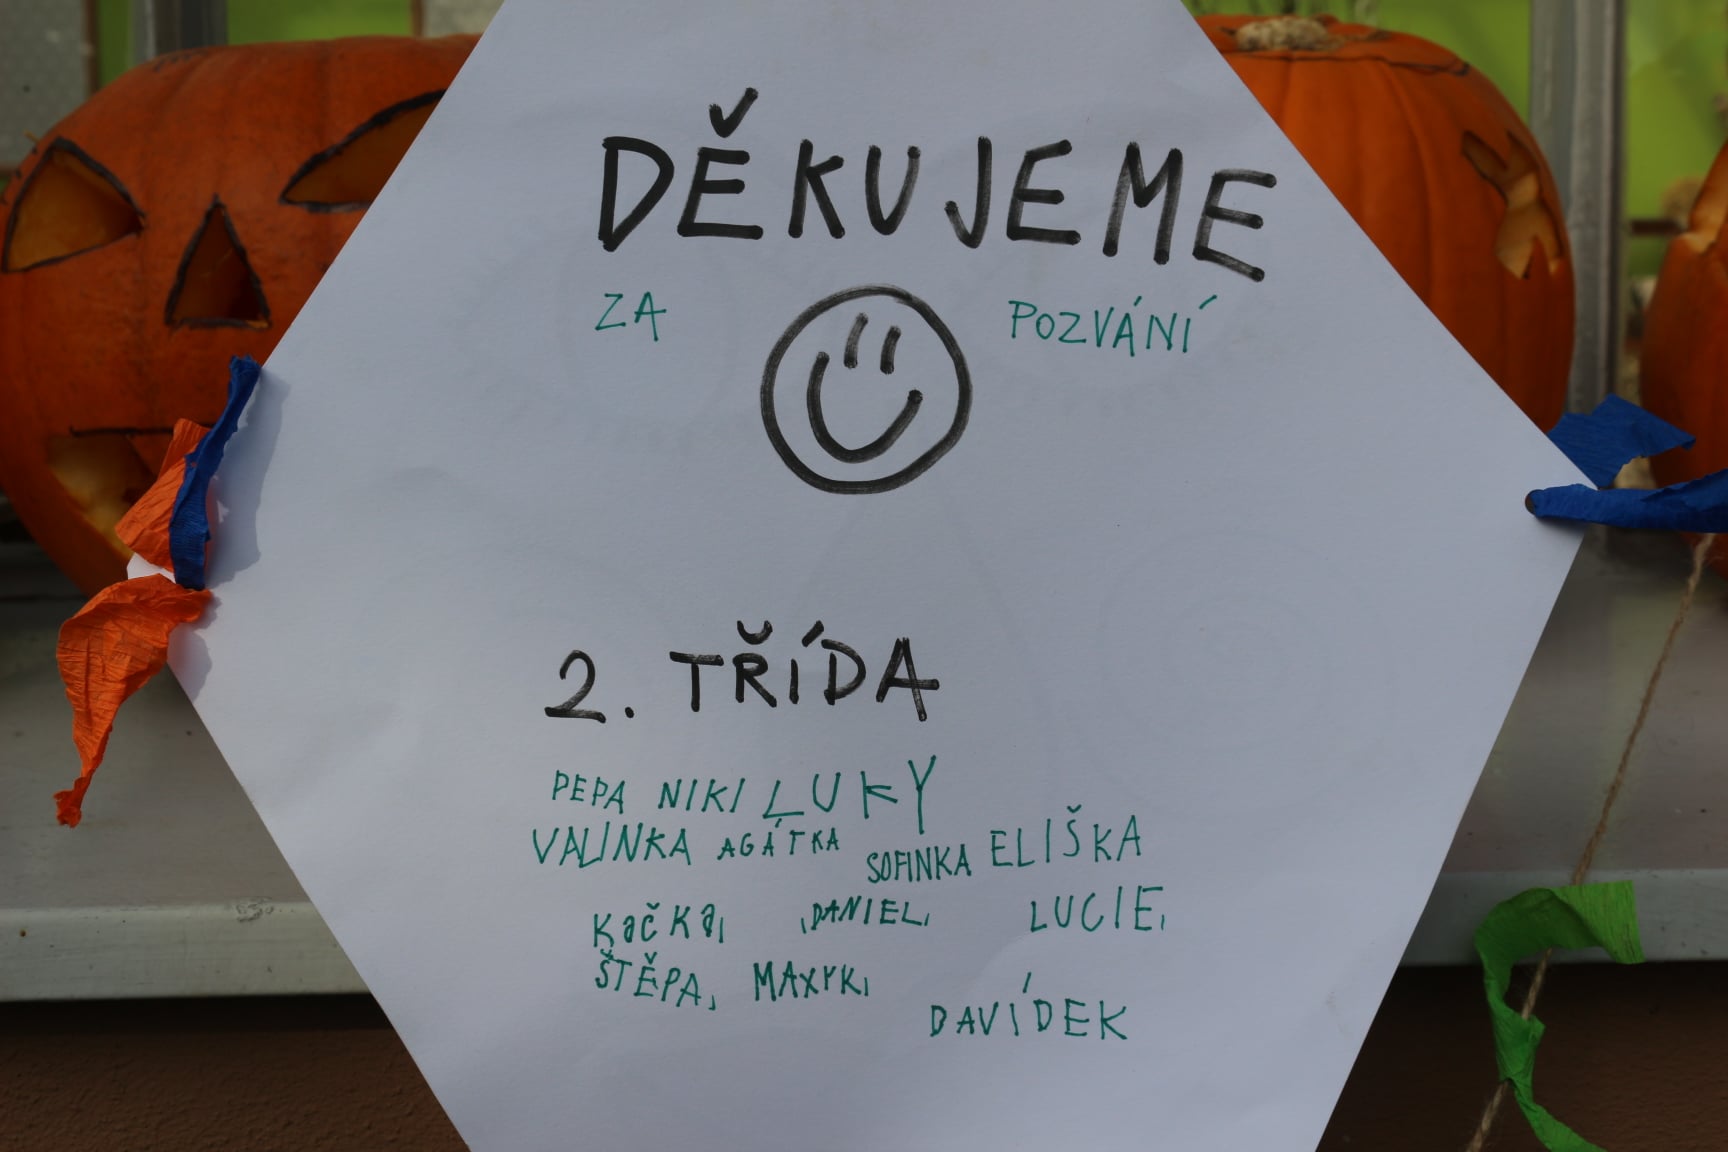 DĚKUJEME
ZA POZVÁNÍ
2. TŘÍDA
PEPA NIKI LUKY
VALINKA AGÁTKA SOFINKA ELIŠKA
KaČKa, DANIEL, LUCIE,
ŠTĚPA, MAXYK,
DAVÍDEK